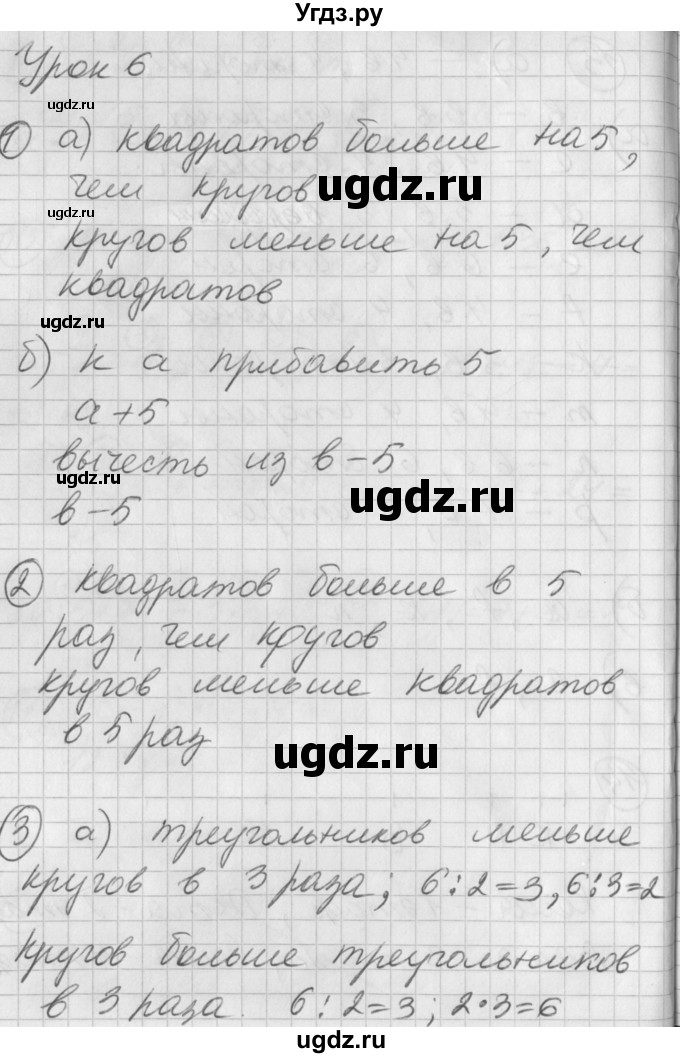 Угдз.ру
Урок 6
ugdz.ru
① а) квадратов больше на 5,
чем кругов
ugdz.ru
кругов меньше на 5, чем
квадратов
ugdz.ru
б) к а прибавить 5
а+5
вычесть из в-5
ugdz.ru
ugdz.ru
в-5
② квадратов больше в 5
раз, чем кругов
кругов меньше квадратов
в 5 раз
ugdz.ru
③ а) треугольников меньше
кругов в 3 раза; 6:2=3, 6:3=2
кругов больше треугольников
в 3 раза. 6:2=3; 2·3=6
ugdz.ru